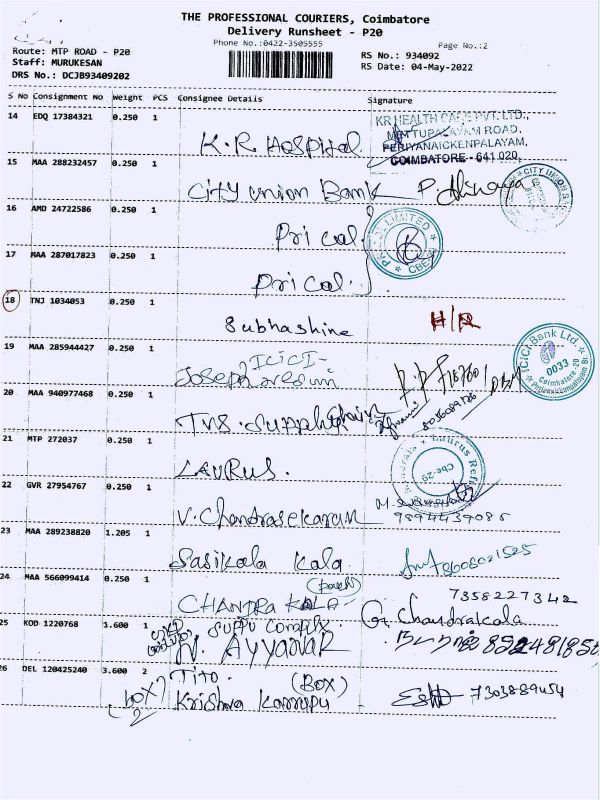 THE PROFESSIONAL COURIERS, Coimbatore
Delivery Runsheet - P20
Phone No.:0422-3505555
Page No.:2
Route: MTP ROAD - P20
Staff: MURUKESAN
DRS No.: DCJB93409202
RS No.: 934092
RS Date: 04-May-2022
S No Consignment No Weight PCS Consignee Details Signature
14 EDQ 17384321 0.250 1 K.R. Hospital
KR HEALTH CARE PVT. LTD.,
METTUPALAYAM ROAD,
PERIYANAICKENPALAYAM,
COIMBATORE - 641 020.
15 MAA 288232457 0.250 1 City Union Bank
CITY UNION
16 AMD 24722586 0.250 1 Pricol
LIMITED
CBE
17 MAA 287017823 0.250 1 Pricol.
18 TNJ 1034053 0.250 1 Subhashine H/R
19 MAA 285944427 0.250 1 ICICI-
Joseph
ICICI Bank Ltd.
0033
Coimbatore-20
20 MAA 940977468 0.250 1 TVS. Supply chain
21 MTP 272037 0.250 1 LAURUS.
Laurus
Cbe-29
22 GVR 27954767 0.250 1 V. Chandrasekaran 9894439086
23 MAA 289238820 1.205 1 Sasikala kala 8608021525
24 MAA 566099414 0.250 1 CHANDRAKALA (pouch) G. Chandrakala
7358227342
25 KOD 1220768 1.600 1 N. AYYANAR
26 DEL 120425240 3.600 2 Tito. (BOX)
Krishna Karrupu 7303889454
(box)
2